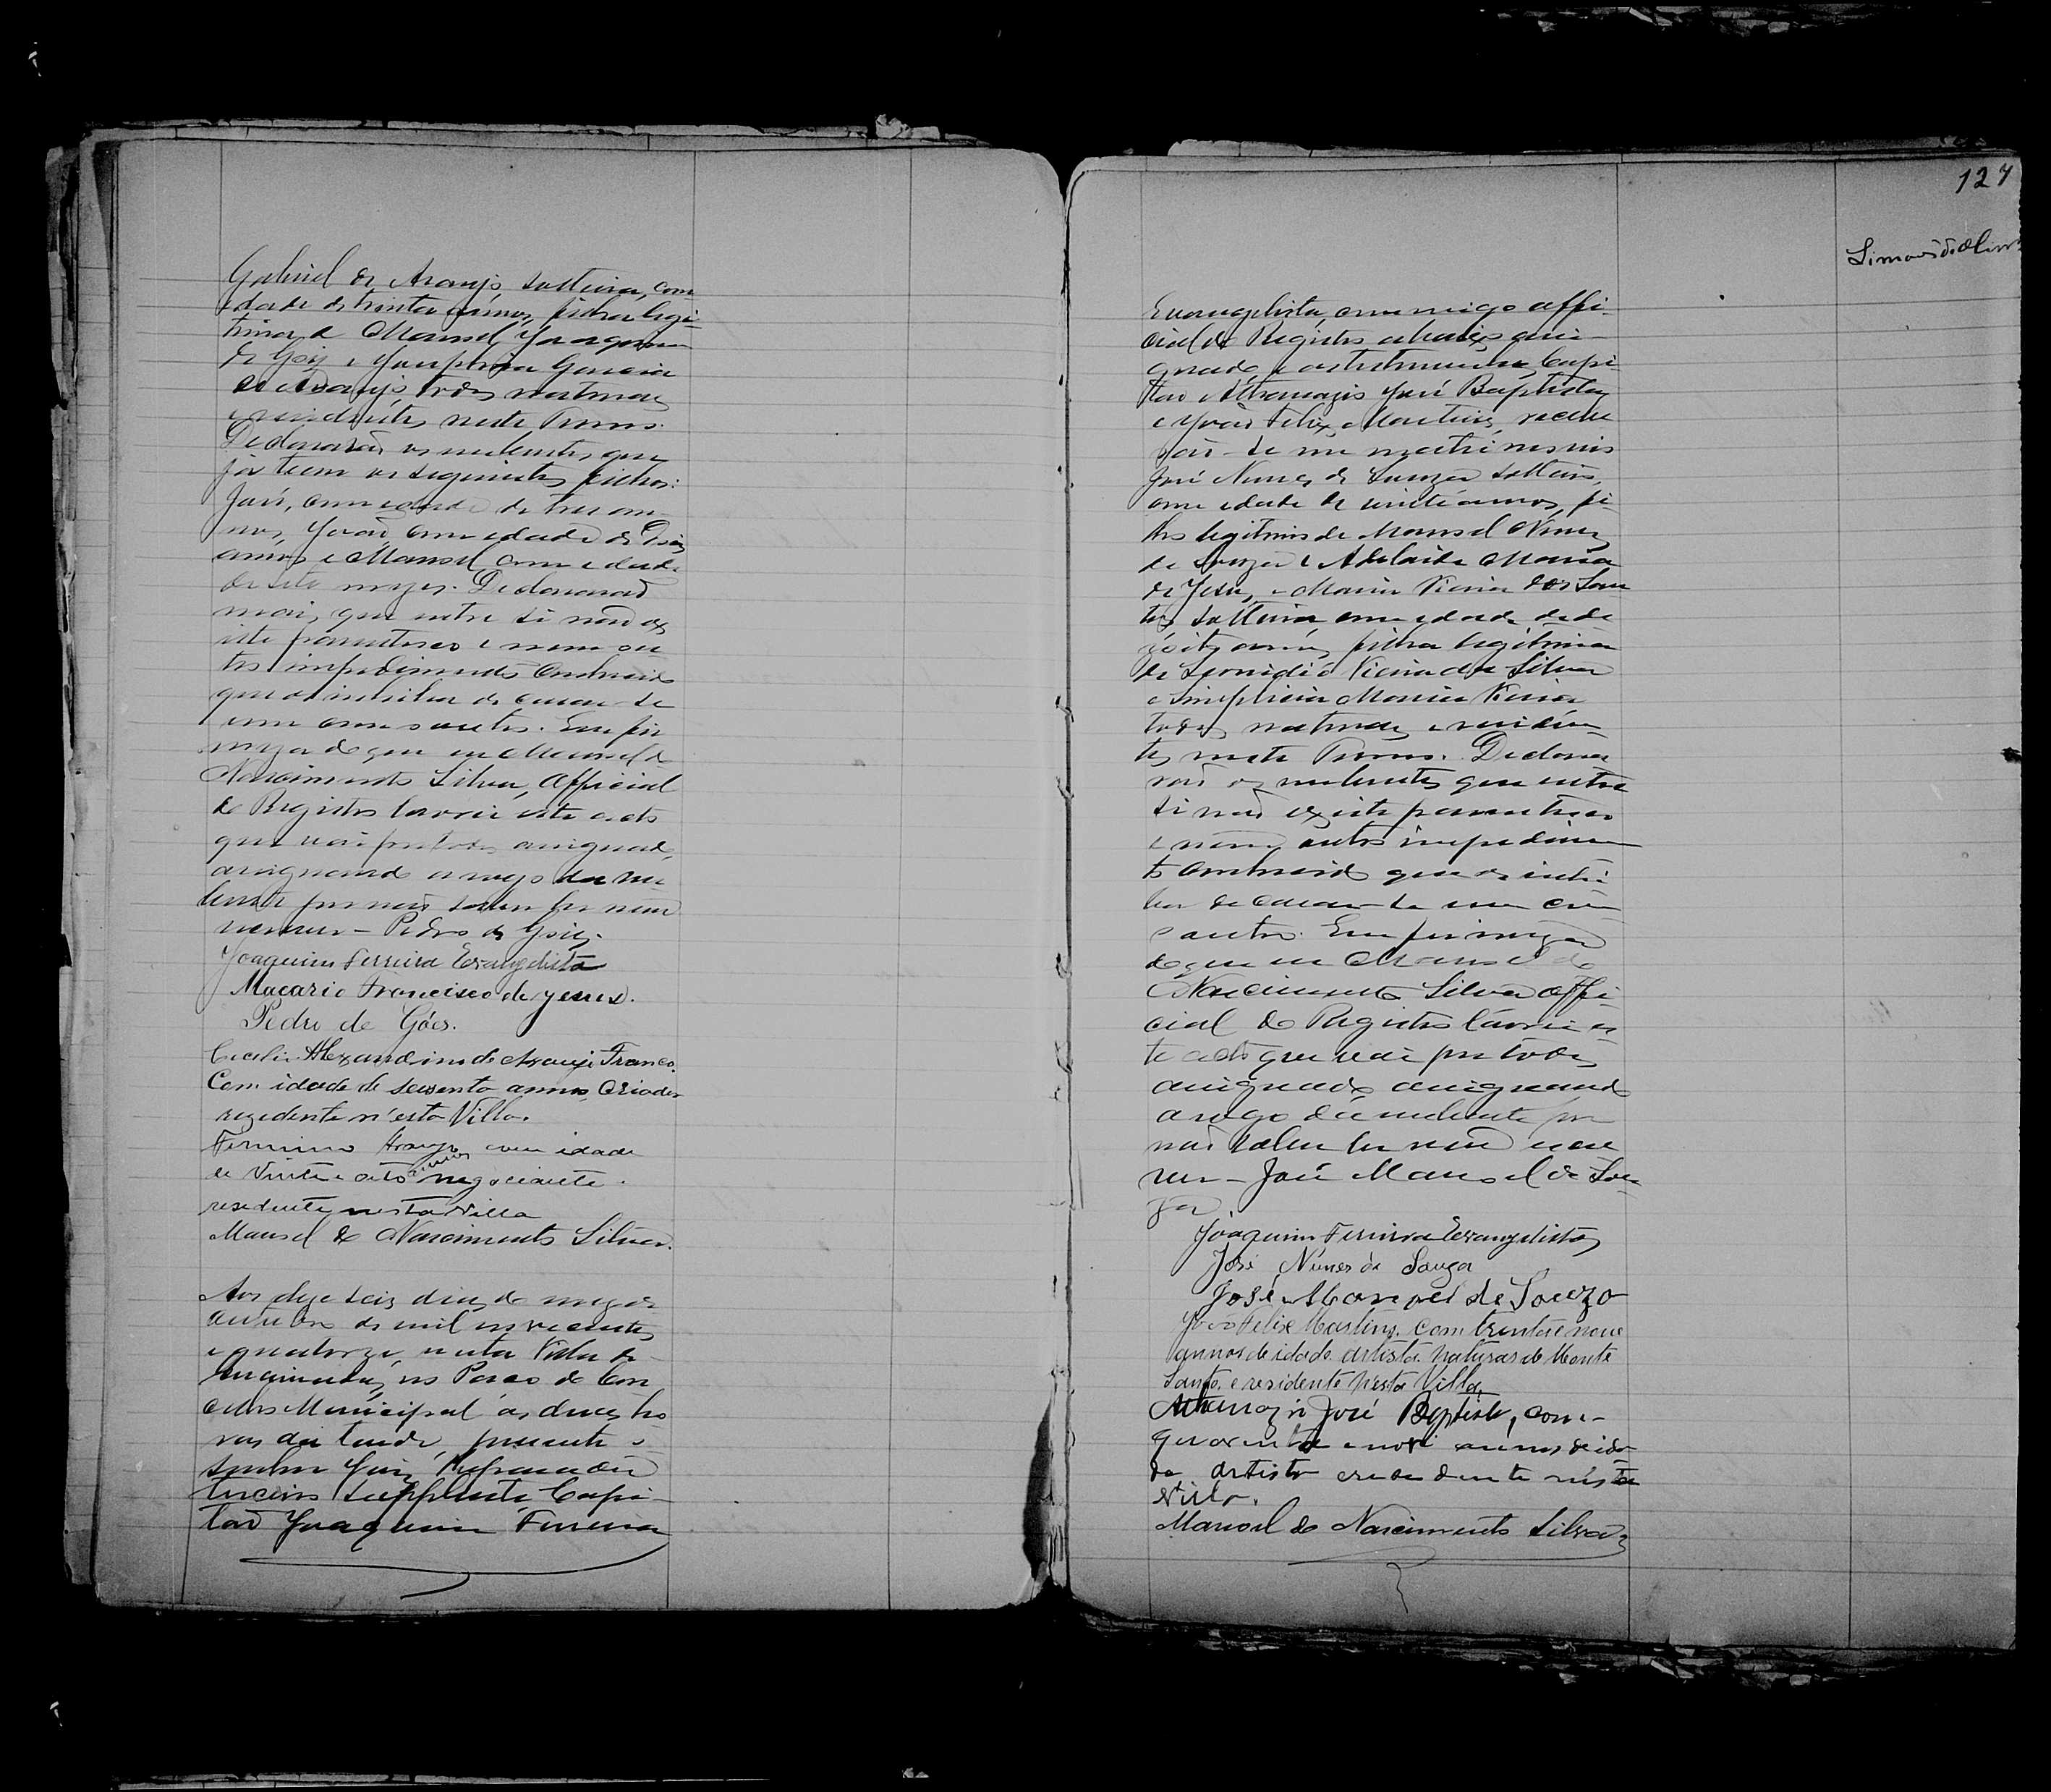 Gabriel de Araujo, solteira, com
idade de trinta annos, filha legi-
tima de Manoel Joaquim
de Goes e Garcia
de Araujo, todos naturaes
e residentes neste Termo.
Declararão os nubentes que
já teem os seguintes filhos:
José, com edade de tres an-
nos, João, com edade de dois
annos e Manoel, com edade
de sete mezes. Declararão
mais que entre si não ex
iste parentesco e nem ou
tro impedimento conhecido
que os inhiba de casar-se
um com o outro. Em fir
meza do que eu Manoel do
Nascimento Silva, Official
do Registro lavrei este acto
que vai por todos assignado,
assignando a rogo da nu
bente por não saber ler nem
escrever - Pedro de Goes.
Joaquim Ferreira Evangelista
Macario Francisco de Jesus.
Pedro de Góes.
Alexandrino de Araujo Franco.
Com idade de sessenta annos, Criador
rezedente n'esta Villa.
Firmino Araujo com idade
de Vinte e oito annos negociante
residente nesta Villa
Manoel do Nascimento Silva.
Aos dezeseis dias do mez de
outubro de mil novecentos
e quatorze, nesta Villa de
no Paço do Con
celho Municipal ás duas ho
ras da tarde, presente o
senhor Juiz Preparador
terceiro supplente Capi-
tão Joaquim Ferreira
127
Evangelista, commigo offi-
cial do Registro abaixo assi-
gnado, e as testemunhas Capi
tão Athanazio José Baptista
e João Felix Martins, recebe
rão-se em matrimonio
José Nunes de Souza solteiro,
com edade de vinte annos, fi-
lho legitimo de Manoel Nunes
de Souza e Adelaide Maria
de Jesus, e Maria Vieira dos San
tos solteira com edade de de
zoito annos, filha legitima
de Leonidio Vieira da Silva
e Simplicia Maria Vieira
todos naturaes e residen-
tes neste Termo. Declara
rão os nubentes que entre
si não existe parentesco
e nem outro impedimen
to conhecido que os inhi
ba de casar-se um com
o outro. Em firmeza
do que eu Manoel do
Nascimento Silva offi-
cial do Registro lavrei es
te acto que vai por todos
assignado assignando
a rogo da nubente por
não saber ler nem escre
ver - José Manoel de Sou
za
Joaquim Ferreira Evangelista
José Nunes de Souza
José Manoel de Souza
João Felix Martins. com trinta e nove
annos de idade artista naturar de Monte
Santo. e residente nesta Villa.
Athanazio José Baptista, com-
quarenta e nove annos de ida
de artista e residente nesta
Villa.
Manoel do Nascimento Silva